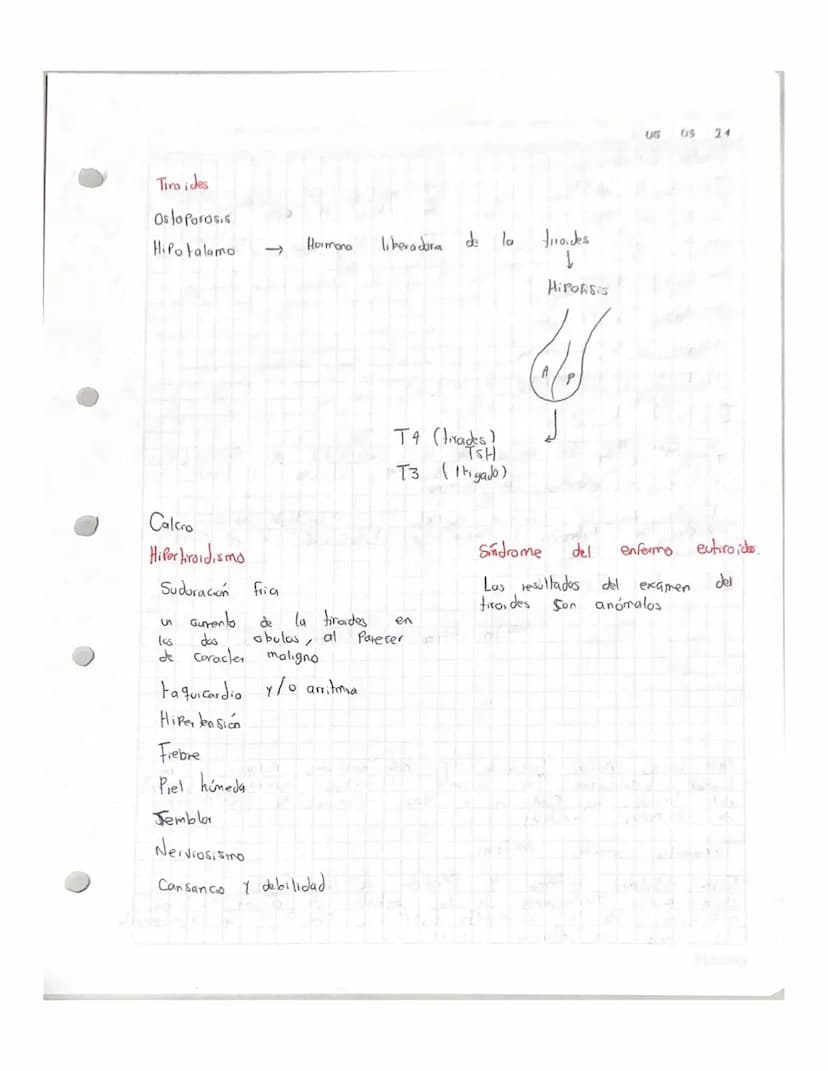 05 03 24
Tiroides
Ostoporosis
Hipotalamo → Hormona liberadora de la tiroides
↓
Hipofisis
A P
T4 (tiroides)
TSH
T3 (Higado)
Calcio
Hipertiroidismo
Sudoración fria
un aumento de la tiroides en
los dos obulos, al Parecer
de caracter maligno
taquicardia y/o arritmia
Hipertensión
Fiebre
Piel húmeda
Temblor
Nerviosismo
Cansancio y debilidad
Síndrome del enfermo eutiroideo.
Los resultados del exámen del
tiroides son anómalos